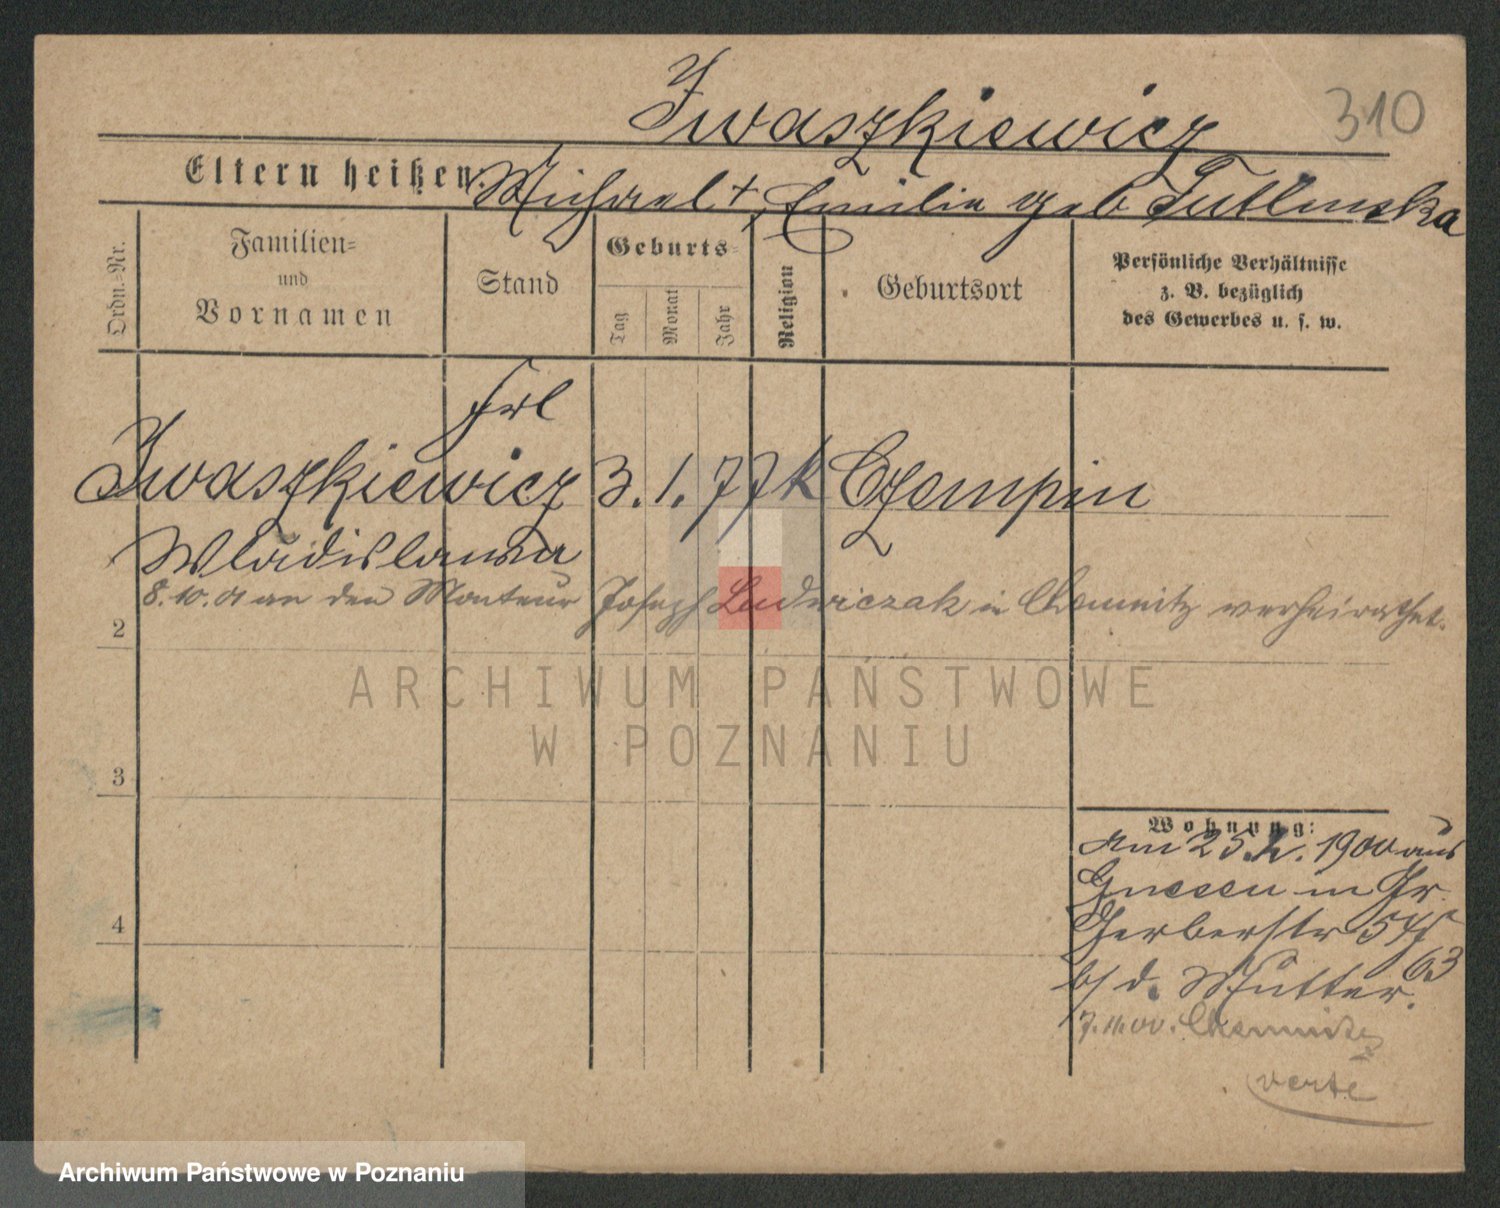 Iwaszkiewicz 310
Eltern heißen: Michael †, Emilie geb Tutlinska
Ordn.-Nr.
Familien-
und
Vornamen
Stand
Geburts-
Tag
Monat
Jahr
Religion
Geburtsort
Persönliche Verhältnisse
z. B. bezüglich
des Gewerbes u. s. w.
Frl
Iwaszkiewicz 3. 1. 77 k Czempin
Wladislawa
8.10.01 an den Monteur Joseph Ludwiczak in Chemnitz verheirathet.
2
3
4
Wohnung:
am 25. 1900 aus
Gnesen in Gr.
Gerberstr 54
63
b/ d. Mutter.
7.11.00. Chemnitz
verte
ARCHIWUM PAŃSTWOWE
W POZNANIU
Archiwum Państwowe w Poznaniu